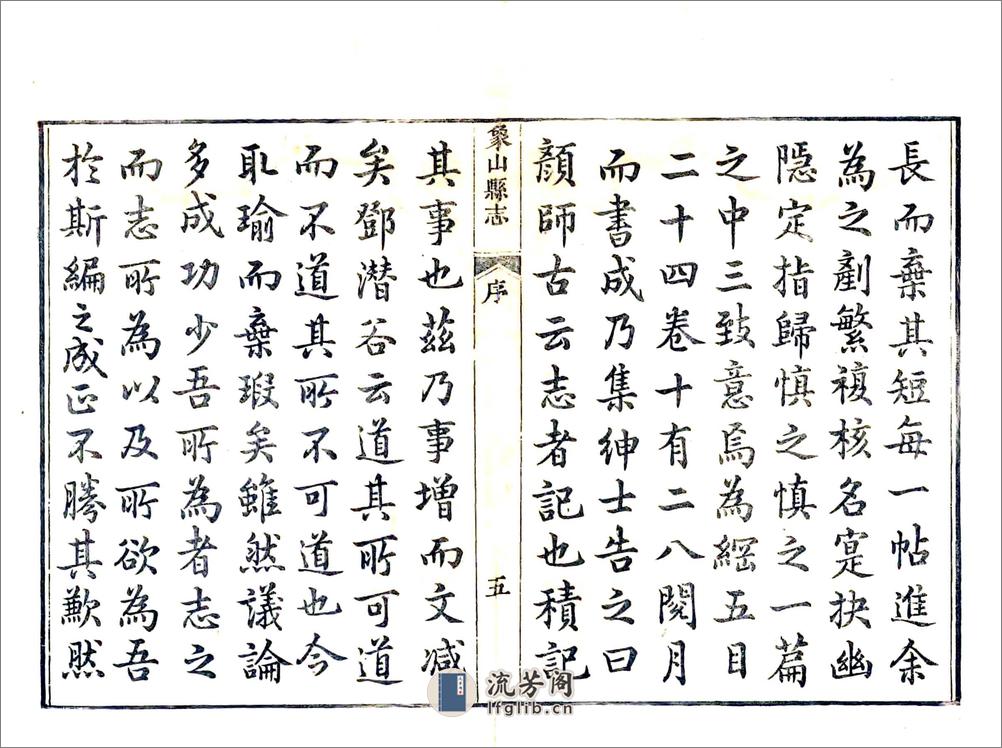 長而棄其短每一帖進余
為之剷繁複核名寔抉幽
隱定指歸慎之慎之一篇
之中三致意焉為綱五目
二十四卷十有二八閱月
而書成乃集紳士告之曰
顏師古云志者記也積記
象山縣志
序
五
其事也茲乃事增而文減
矣鄧潛谷云道其所可道
而不道其所不可道也今
取瑜而棄瑕矣雖然議論
多成功少吾所為者志之
而志所為以及所欲為吾
於斯編之成正不勝其歉然
流芳閣
lfglib.cn